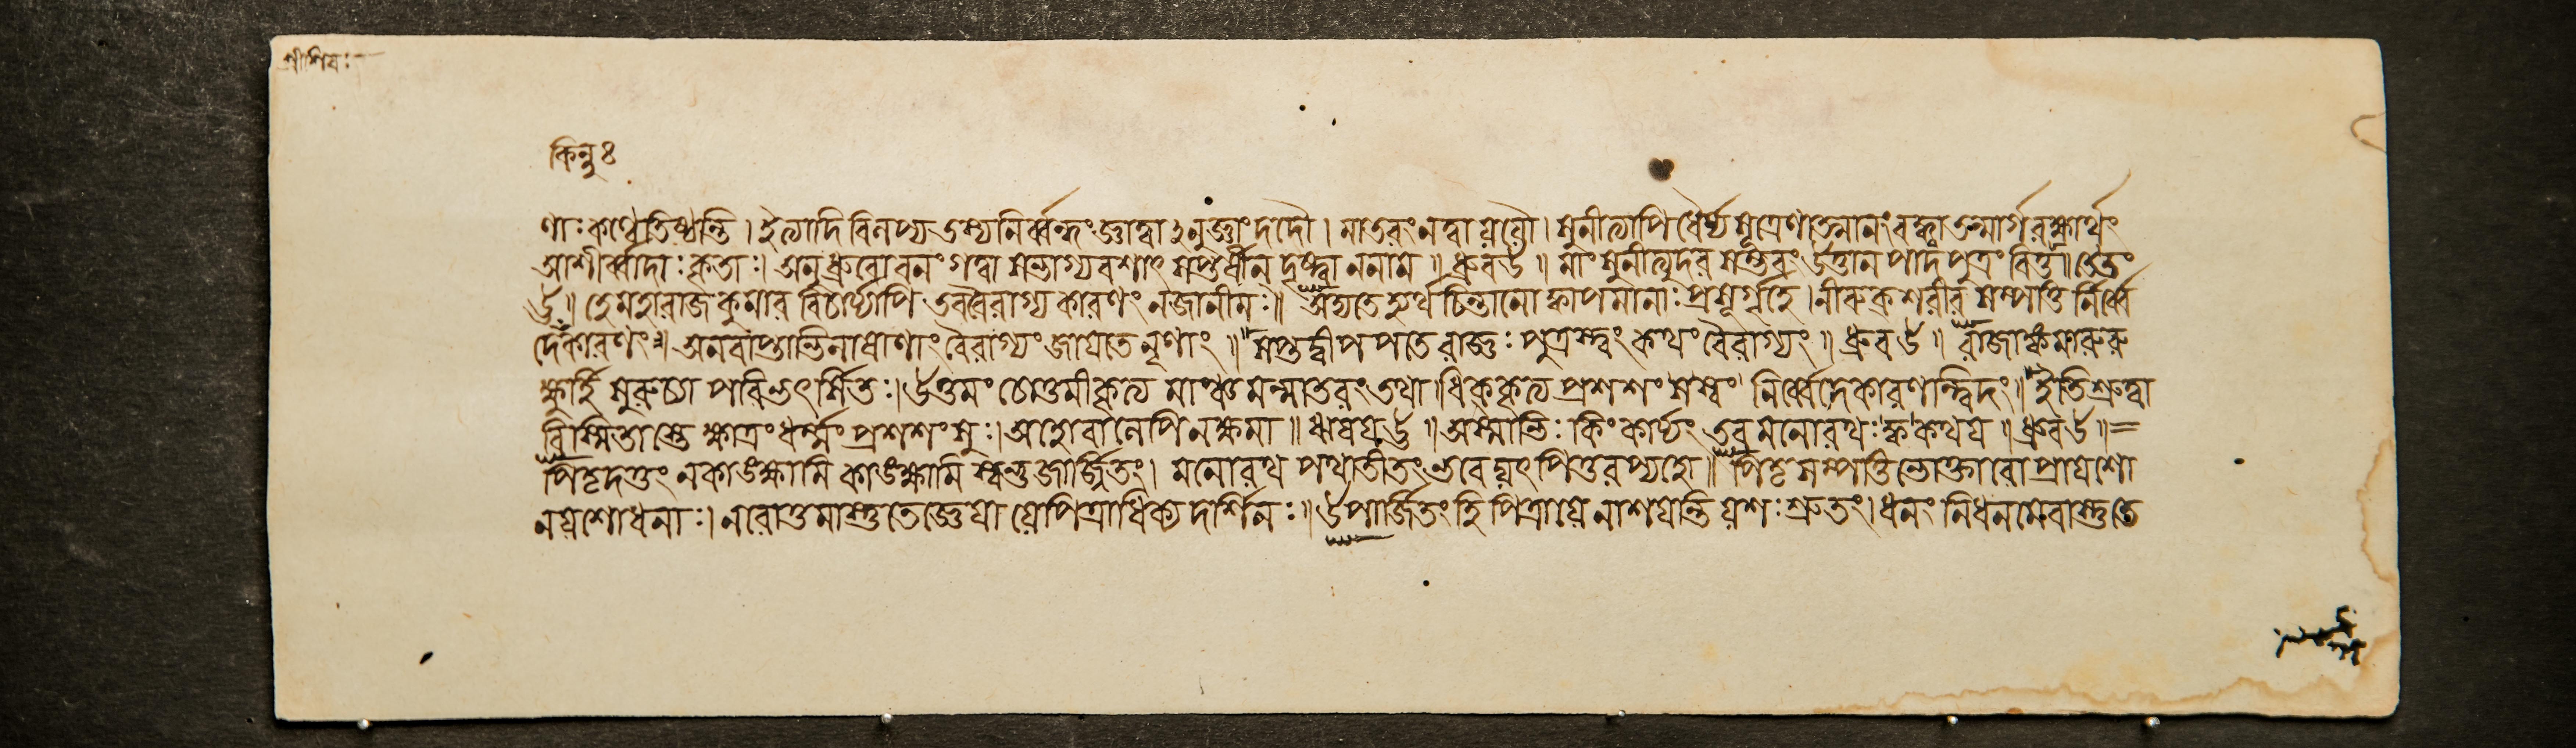 শ্রীশিবঃ
কিন্নু ঃ
ণাঃ কণ্ঠেতিষ্ঠন্তি । ইত্যাদি বিলপ্য তস্য নির্ব্বন্ধং জ্ঞাত্বা ঽনুজ্ঞাং দদৌ । মাতরং নত্বা যযৌ । সুনীত্যাপি ধৈর্য্য সূত্রেণাত্মানং বদ্ধ্বা তন্মার্গরক্ষার্থং
আশীর্ব্বাদাঃ কৃতাঃ। অনু ধ্রুবো বনং গত্বা সদ্ভাগ্যবশাৎ সপ্তর্ষীন্ দৃষ্ট্বা ননাম ॥ ধ্রুব উ ॥ মাং সুনীত্যুদর সম্ভবং উত্তানপাদ পুত্রং বিত্ত॥
উ ॥ হে মহারাজ কুমার বিচার্য্যাপি তব বৈরাগ্য কারণং ন জানীমঃ॥ অদ্যতে হ্যর্থ চিন্তানো প্রসূর্গৃহে । নীরুক্ শরীর সম্পত্তি র্নির্ব্বে
দে কারণং॥ অনবাপ্তাভিলাষাণাং বৈরাগ্যং জায়তে নৃণাং ॥ সপ্তদ্বীপপতে রাজ্ঞঃ পুত্রস্ত্বং কথং বৈরাগ্যং ॥ ধ্রুব উ ॥ রাজাঙ্কমারুরু
ক্ষুর্হি সুরুচ্যা পরিভর্ৎসিতঃ। উত্তমং চোত্তমীকৃত্য মাঞ্চ মন্মাতরং তথা । ধিক্কৃত্য প্রশশংস স্বং নির্ব্বেদকারণন্ত্বিদং॥ ইতি শ্রুত্বা
বিস্মিতাস্তে ক্ষাত্রং ধর্ম্মং প্রশশংসুঃ। অহো বালেপি নক্ষমা ॥ ঋষয় উ ॥ অস্মাভিঃ কিং কার্য্যং তব মনোরথঃ কথয় ॥ ধ্রুব উ ॥ =
পিতৃদত্তং ন কাঙক্ষামি কাঙক্ষামি স্বভুজার্জ্জিতং। মনোরথ পথাতীতং ভবেদ্যৎ পিতুরপ্যহো ॥ পিতৃ সম্পত্তি ভোক্তারো প্রায়শো
ন যশোধনাঃ। নরোত্তমাস্তু তে জ্ঞেয়া যে পিত্রাধিক্য দর্শিনঃ॥ উপার্জিতং হি পিত্রা যে নাশয়ন্তি যশঃ শ্রুতং। ধনং নিধনমেবাস্তু তে